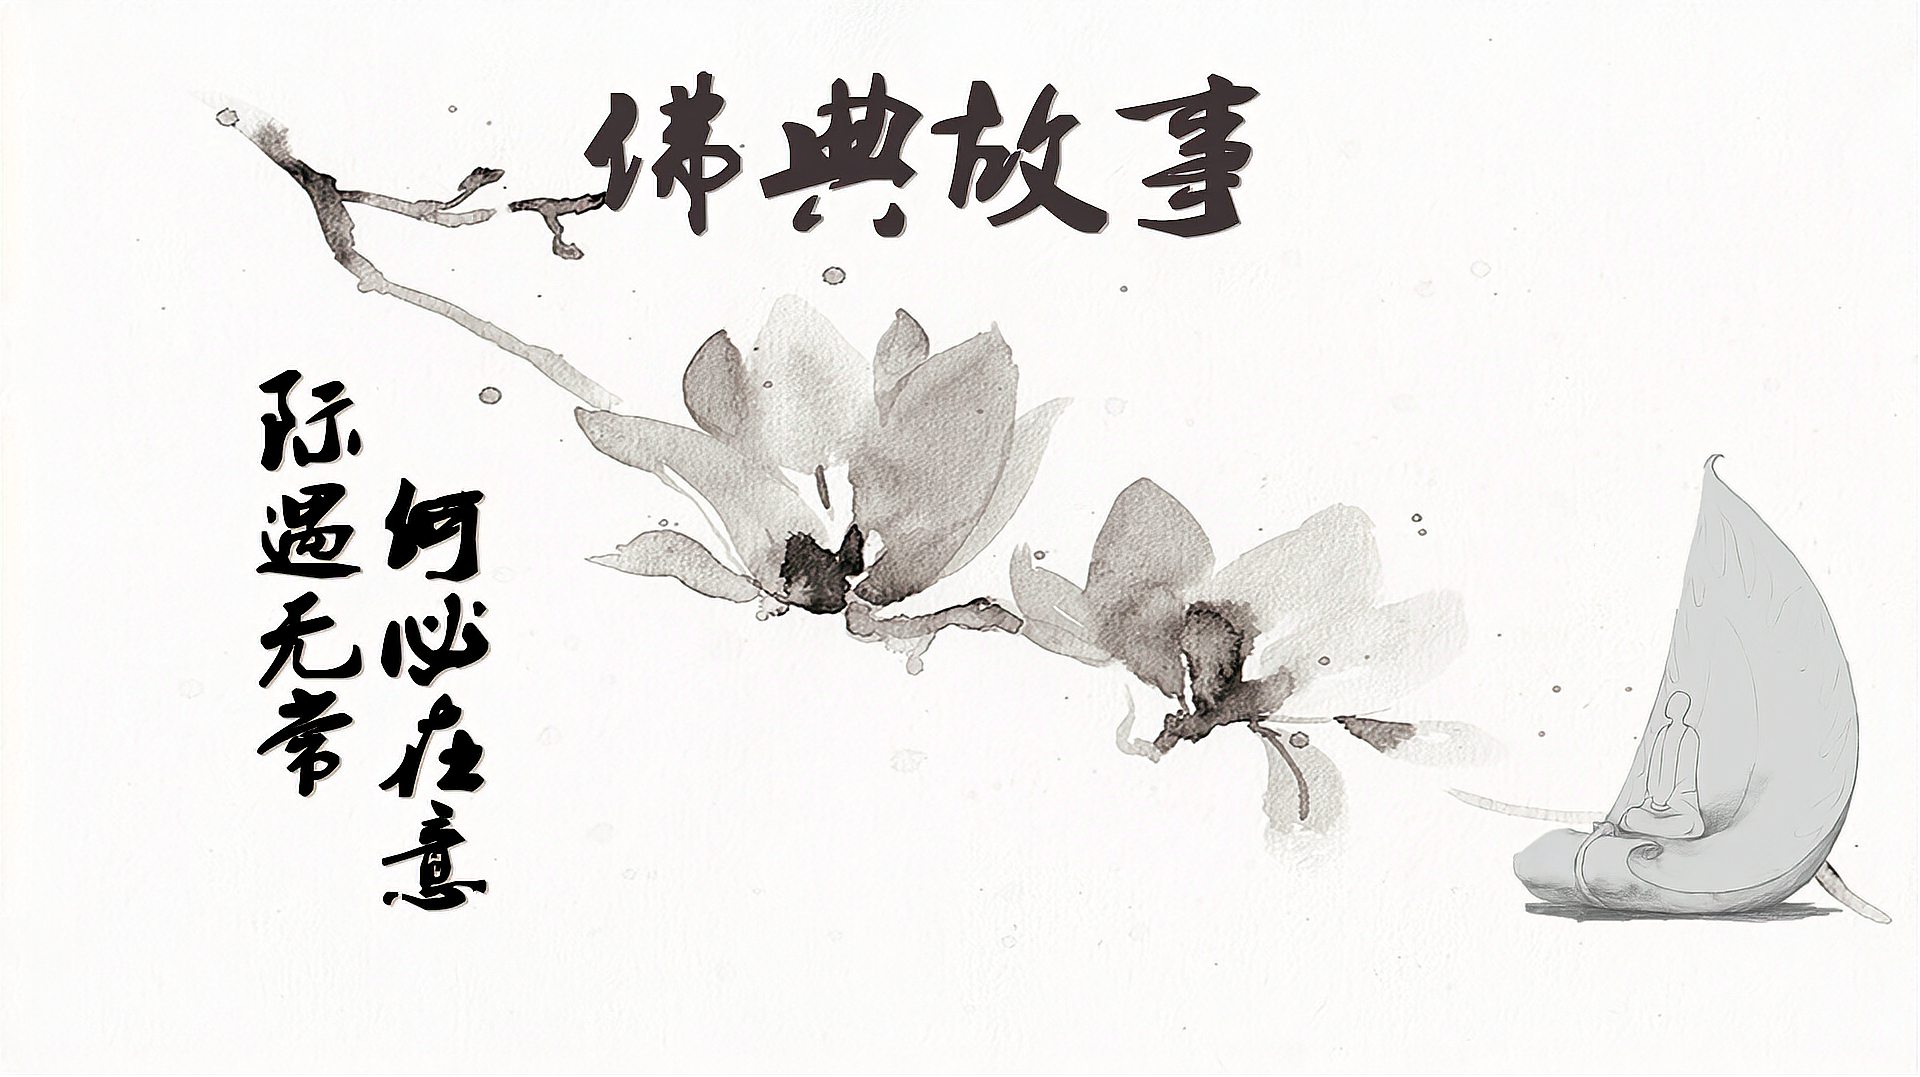 佛典故事
际遇无常
何必在意